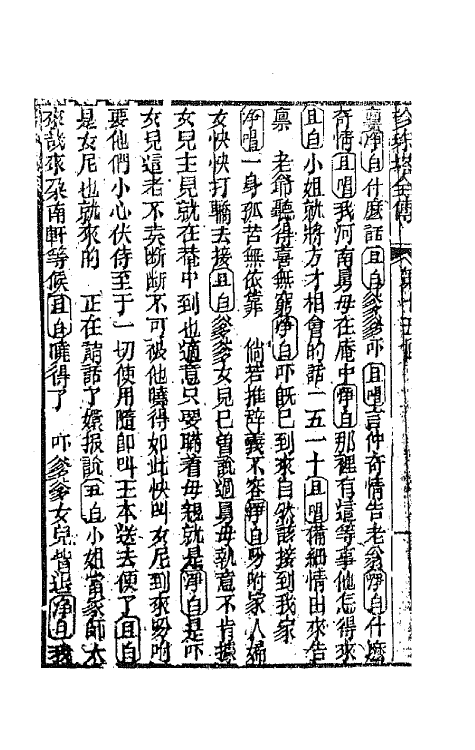 珍珠塔全傳 第十五回
稟淨白什麼話旦白爹爹吓旦唱言仲奇情告老翁淨白什麼
奇情旦唱我河南舅母在庵中淨白那裡有這等事他怎得來
旦白小姐就將方才相會的話一五一十旦唱備細情由來告
禀 老爺聽得喜無窮淨白吓既已到來自然該接到我家
淨唱一身孤苦無依靠 倘若推辭義不容淨白吩咐家人婦
女快快打轎去接旦白爹爹女兒已曾說過舅母執意不肯據
女兒主見就在菴中到也適意只要瞞着母親就是淨白是吓
女兒這老不賢斷斷不可被他曉得如此快叫女尼到來吩咐
要他們小心伏侍至于一切使用隨即叫王本送去便了旦白
是女尼也就來的 正在講話了嬛报說丑白小姐當家師太
來哉來朶南軒等候旦白曉得了 吓爹爹女兒暫退淨白我